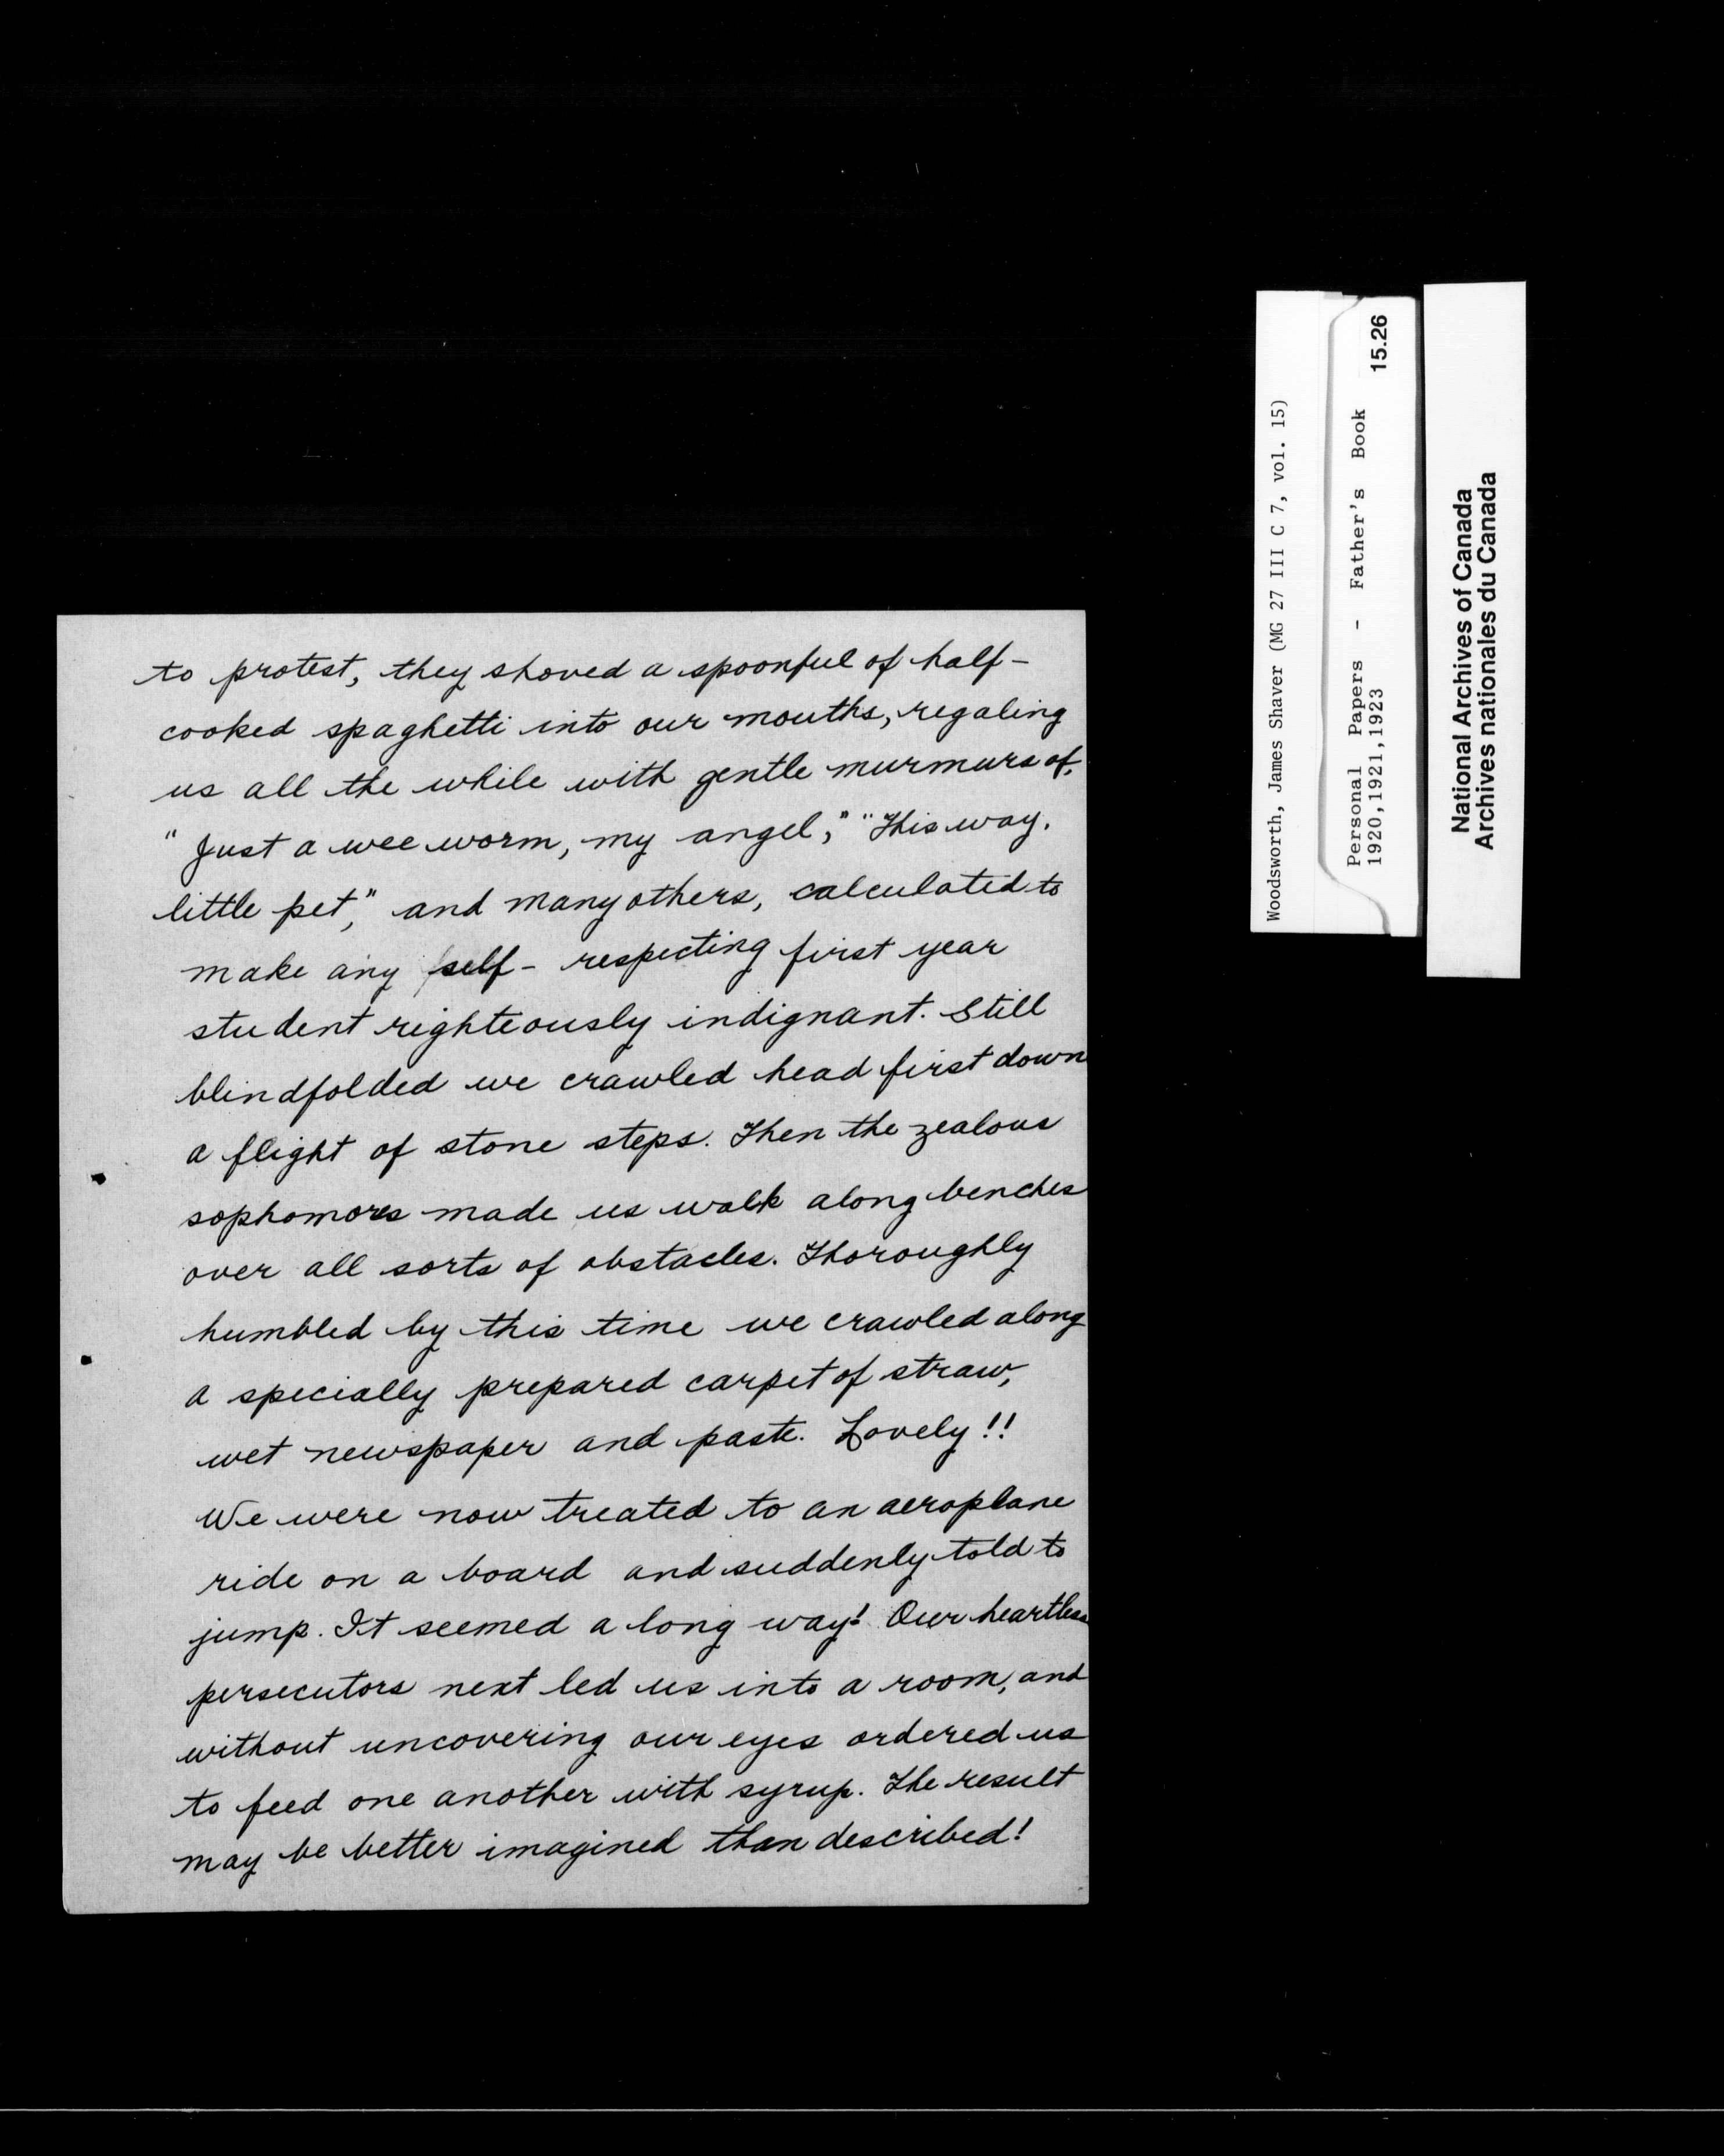 to protest, they shoved a spoonful of half-
cooked spaghetti into our mouths, regaling
us all the while with gentle murmurs of,
"Just a wee worm, my angel," "This way,
little pet," and many others, calculated to
make any self-respecting first year
student righteously indignant. Still
blindfolded we crawled head first down
a flight of stone steps. Then the zealous
sophomores made us walk along benches
over all sorts of obstacles. Thoroughly
humbled by this time we crawled along
a specially prepared carpet of straw,
wet newspaper and paste. Lovely!!
We were now treated to an aeroplane
ride on a board and suddenly told to
jump. It seemed a long way! Our heartless
persecutors next led us into a room, and
without uncovering our eyes ordered us
to feed one another with syrup. The result
may be better imagined than described!
Woodsworth, James Shaver (MG 27 III C 7, vol. 15)
Personal Papers - Father's Book 15.26
1920,1921,1923
National Archives of Canada
Archives nationales du Canada